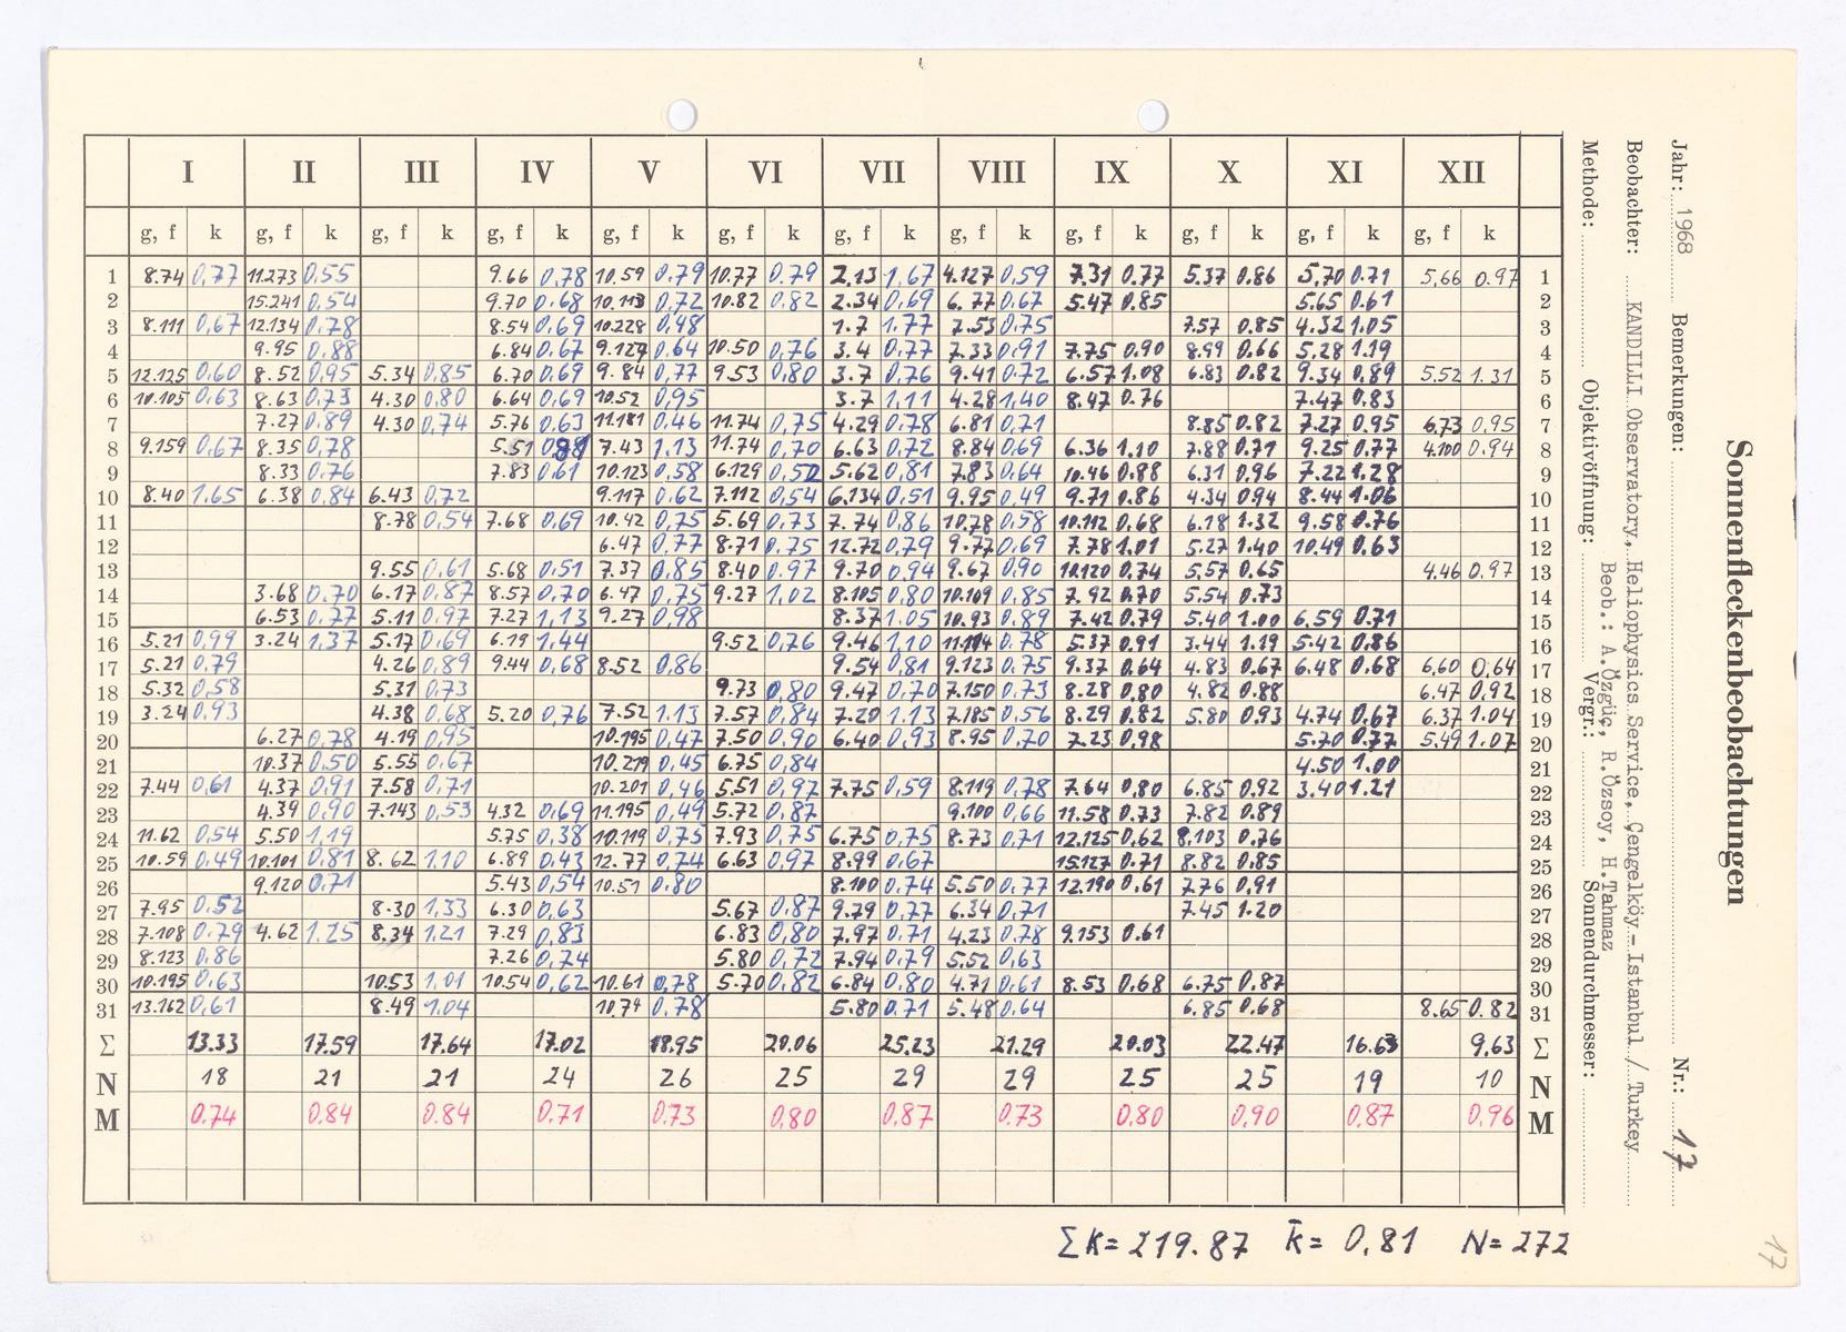 Sonnenfleckenbeobachtungen
Jahr: 1968 Bemerkungen: Nr.: 17
Beobachter: KANDILLI Observatory, Heliophysics Service, Çengelköy - Istanbul / Turkey
Beob.: A.Özgüç, R.Özsoy, H.Tahmaz
Methode: Objektivöffnung: Vergr.: Sonnendurchmesser:
I II III IV V VI VII VIII IX X XI XII
g, f k g, f k g, f k g, f k g, f k g, f k g, f k g, f k g, f k g, f k g, f k g, f k
1 8.74 0,77 11.273 0,55 9.66 0,78 10.59 0.79 10.77 0.79 2.13 1,67 4.127 0,59 7.31 0.77 5.37 0.86 5,70 0.71 5,66 0.97 1
2 15.241 0,54 9.70 0.68 10.113 0,72 10.82 0,82 2.34 0,69 6.77 0,67 5.47 0.85 5.65 0.61 2
3 8.111 0,67 12.134 0,78 8.54 0,69 10.228 0,48 1.7 1,77 7.53 0,75 7.57 0.85 4.32 1.05 3
4 9.95 0,88 6.84 0,67 9.127 0,64 10.50 0,76 3.4 0,77 7.33 0,91 7.75 0,90 8.99 0.66 5.28 1.19 4
5 12.125 0,60 8.52 0,95 5.34 0,85 6.70 0,69 9.84 0,77 9.53 0,80 3.7 0,76 9.41 0.72 6.57 1.08 6.83 0.82 9.34 0.89 5.52 1.31 5
6 10.105 0,63 8.63 0,73 4.30 0,80 6.64 0,69 10.52 0,95 3.7 1,11 4.28 1,40 8.47 0.76 7.47 0.83 6
7 7.27 0,89 4.30 0,74 5.76 0,63 11.181 0,46 11.74 0,75 4.29 0,78 6.81 0,71 8.85 0.82 7.27 0.95 6.73 0,95 7
8 9.159 0,67 8.35 0,78 5.51 7.43 1,13 11.74 0,70 6.63 0,72 8.84 0,69 6.36 1.10 7.88 0.71 9.25 0.77 4.100 0.94 8
9 8.33 0,76 7.83 0,61 10.123 0,58 6.129 0,52 5.62 0,81 7.83 0,64 10.46 0.88 6.31 0.96 7.22 1.28 9
10 8.40 1,65 6.38 0,84 6.43 0,72 9.117 0,62 7.112 0,54 6.134 0,51 9.95 0,49 9.71 0.86 4.34 0.94 8.44 1.06 10
11 8.78 0,54 7.68 0,69 10.42 0,75 5.69 0,73 7.74 0,86 10.78 0,58 10.112 0,68 6.18 1.32 9.58 0.76 11
12 6.47 0,77 8.71 0,75 12.72 0,79 9.77 0,69 7.78 1,01 5.27 1.40 10.49 0.63 12
13 9.55 0,61 5.68 0,51 7.37 0,85 8.40 0,97 9.70 0,94 9.67 0,90 0.74 5,57 0.65 4.46 0,97 13
14 3.68 0,70 6.17 0,87 8.57 0,70 6.47 0,75 9.27 1,02 8.105 0,80 10.109 0,85 7.92 0.70 5.54 0.73 14
15 6.53 0,77 5.11 0,97 7.27 1,13 9.27 0,98 8.37 1,05 10.93 0,89 7.42 0.79 5.40 1.00 6,59 0.71 15
16 5.21 0,99 3.24 1,37 5.17 0,69 6.19 1,44 9.52 0,76 9.46 1,10 11.114 0.78 5.37 0.91 3.44 1.19 5.42 0.86 16
17 5.21 0,79 4.26 0,89 9.44 0,68 8.52 0,86 9.54 0,81 9.123 0.75 9.37 0.64 4.83 0.67 6.48 0.68 6,60 0,64 17
18 5.32 0,58 5.31 0,73 9.73 0,80 9.47 0,70 7.150 0,73 8.28 0,80 4.82 0.88 6.47 0,92 18
19 3.24 0,93 4.38 0,68 5.20 0,76 7.52 1.13 7.57 0,84 7.20 1.13 7.185 0,56 8.29 0.82 5.80 0.93 4.74 0.67 6.37 1.04 19
20 6.27 0,78 4.19 0,95 10.195 0,47 7.50 0,90 6.40 0,93 8.95 0,70 7.23 0,98 5.70 0.77 5.49 1.07 20
21 10.37 0,50 5.55 0,67 10.279 0,45 6.75 0,84 4.50 1.00 21
22 7.44 0,61 4.37 0,91 7.58 0,71 10.201 0,46 5.51 0,97 7.75 0,59 8.119 0,78 7.64 0,80 6.85 0.92 3.40 1.21 22
23 4.39 0,90 7.143 0,53 4.32 0,69 11.195 0,49 5.72 0,87 9.100 0,66 11.58 0.73 7.82 0.89 23
24 11.62 0,54 5.50 1,19 5.75 0,38 10.119 0,75 7.93 0,75 6.75 0,75 8.73 0,71 12.125 0,62 8.103 0.76 24
25 10.59 0,49 10.101 0,81 8.62 1.10 6.89 0,43 12.77 0,74 6.63 0,97 8.99 0,67 15.127 0.71 8.82 0.85 25
26 9.120 0,71 5.43 0,54 10.51 0.80 8.100 0,74 5.50 0,77 12.190 0,61 7.76 0,91 26
27 7.95 0,52 8.30 1,33 6.30 0,63 5.67 0,87 9.79 0,77 6.34 0,71 7.45 1.20 27
28 7.108 0,79 4.62 1,25 8,34 1,21 7.29 0,83 6.83 0,80 7.97 0,71 4.23 0,78 9.153 0.61 28
29 8.123 0,86 7.26 0,74 5.80 0,72 7.94 0,79 5.52 0,63 29
30 10.195 0,63 10.53 1,01 10.54 0,62 10.61 0,78 5.70 0,82 6.84 0,80 4.71 0,61 8.53 0.68 6.75 0.87 30
31 13.162 0,61 8.49 1.04 10.74 0.78 5.80 0.71 5.48 0,64 6.85 0.68 8.65 0.82 31
Σ 13.33 17.59 17.64 17.02 18.95 20.06 25.23 21.29 20.03 22.47 16.63 9.63 Σ
N 18 21 21 24 26 25 29 29 25 25 19 10 N
M 0.74 0.84 0.84 0.71 0.73 0,80 0.87 0.73 0.80 0,90 0.87 0.96 M
ΣK= 219.87 k̄= 0,81 N= 272
17